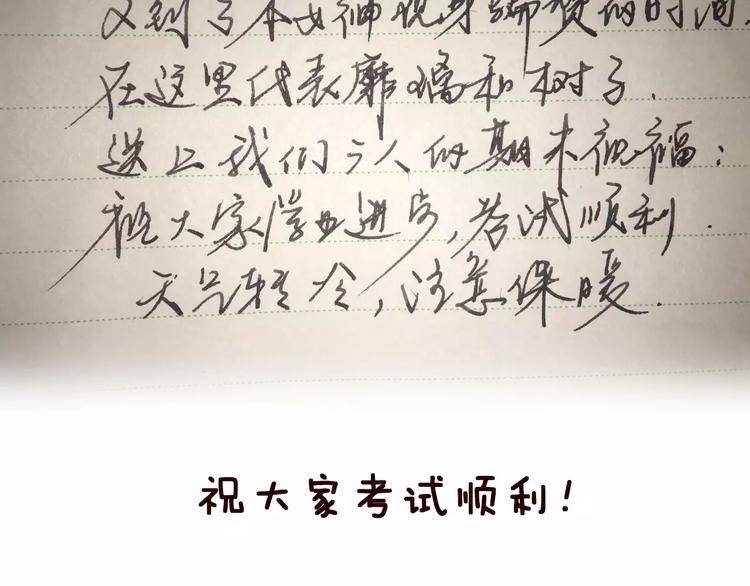 又到了本女神现身编度的时间.
在这里代表靡璃和树子.
送上我们三人的期末祝福:
祝大家学业进步,考试顺利.
天气转冷,注意保暖.
祝大家考试顺利!